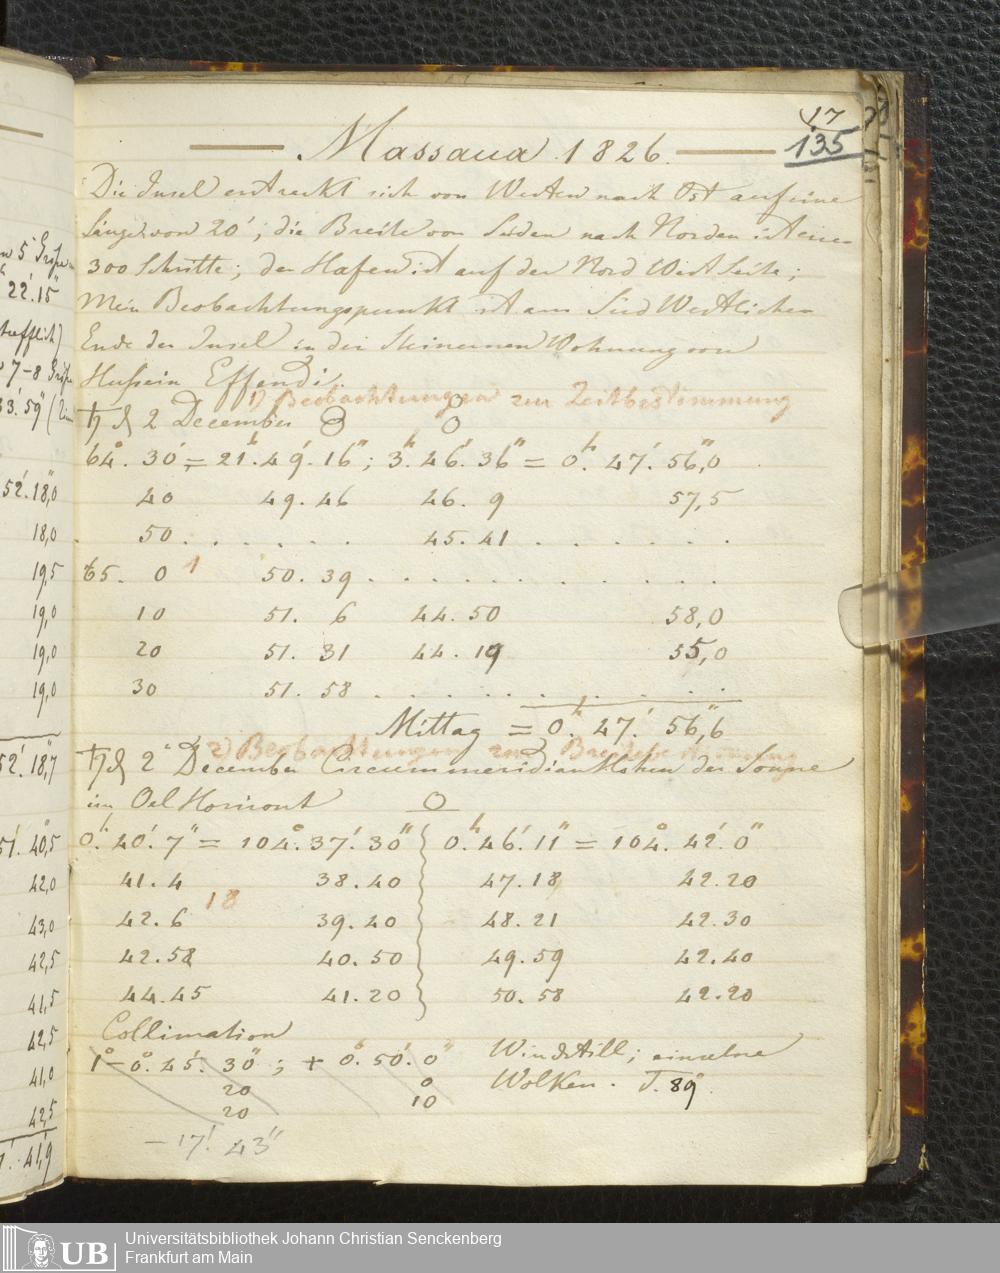 17
135
Massaua 1826.
Die Insel erstreckt sich von Westen nach Ost auf eine
Länge von 20'; die Breite von Süden nach Norden ist etwa
300 Schritte; der Hafen ist auf der Nord West Seite;
Mein Beobachtungspunkt ist am Süd Westlichen
Ende der Insel in der Steinernen Wohnung von
Hussein Effendi.
1) Beobachtungen zur Zeitbestimmung
♄ d 2 December
64°. 30' = 21h. 49'. 16"; 3h. 46'. 36" = 0h. 47'. 56",0
40 49. 46 46. 9 57,5
50 . . . . . . 45. 41 . . . . . . .
65. 0 1 50. 39 . . . . . . . . . . .
10 51. 6 44. 50 58,0
20 51. 31 44. 19 55,0
30 51. 58 . . . . . . . . . .
Mittag = 0h. 47'. 56",6
2) Beobachtungen zur Breitenbestimmung
♄ d 2 December Circummeridian Höhen der Sonne
im Oel Horizont
0h. 40'. 7" = 104°. 37'. 30" 0h. 46'. 11" = 104°. 42'. 0"
41. 4 38. 40 47. 18 42. 20
18
42. 6 39. 40 48. 21 42. 30
42. 58 40. 50 49. 59 42. 40
44. 45 41. 20 50. 58 42. 20
Collimation
1° - 0°. 45'. 30"; + 0°. 50'. 0" Windstill; einzelne
20 0 Wolken. T. 89°.
20 10
- 17'. 43"
22'. 15"
52'. 18",0
18,0
19,5
19,0
19,0
19,0
52'. 18",7
51'. 40",5
42,0
43,0
42,5
41,5
42,5
41,0
42,5
41,9
UB
Universitätsbibliothek Johann Christian Senckenberg
Frankfurt am Main